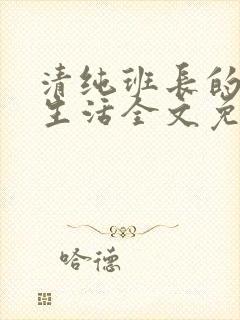 清纯班长的
生活全文免
哈德